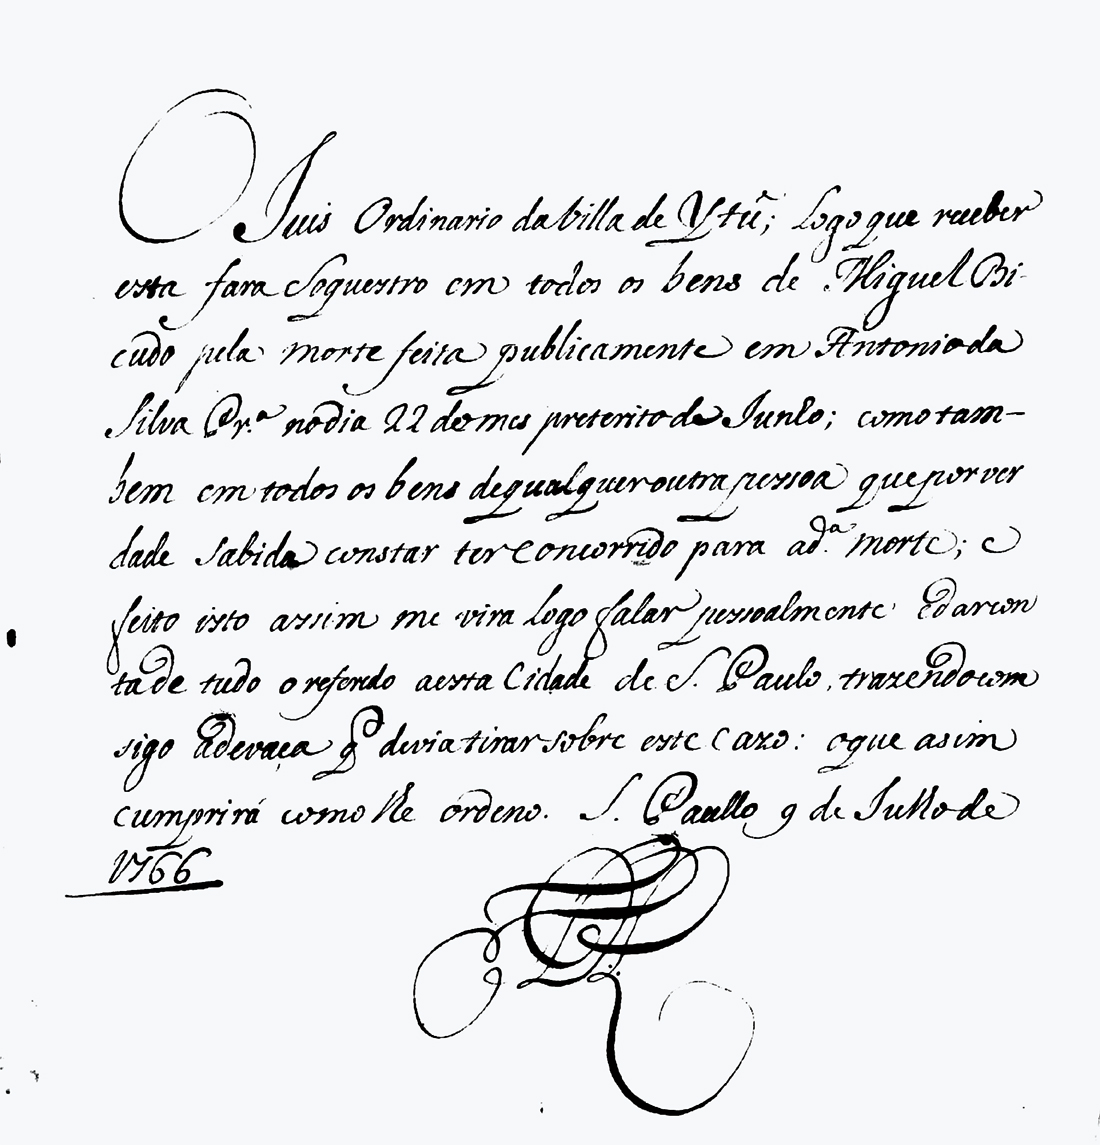 O Juis Ordinario da Villa de Ytú; Logo que receber
esta fara Soquestro em todos os bens de Miguel Bi-
cudo pela morte feita publicamente em Antonio da
Silva Pr.ª no dia 22 do mes preterito de Junho; como tam-
bem em todos os bens de qualquer outra pessoa que por ver
dade sabida constar ter concorrido para a d.ª morte; e
feito isto assim me vira logo falar pessoalmente e dar con
ta de tudo o referido a esta Cidade de S. Paulo, trazendo com
sigo a devaça q̃ devia tirar sobre este Cazo: o que asim
cumprirá como lhe ordeno. S. Paullo 9 de Julho de
1766